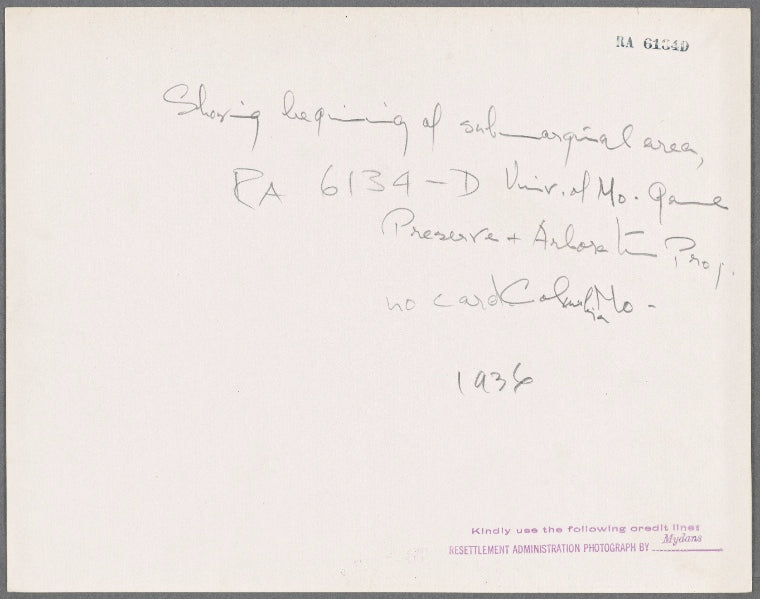 RA 6134D
Showing beginning of submarginal area,
RA 6134-D Univ. of Mo. Game
Preserve + Arboretum Proj.
no card Columbia Mo -
1936
Kindly use the following credit line:
Mydans
RESETTLEMENT ADMINISTRATION PHOTOGRAPH BY